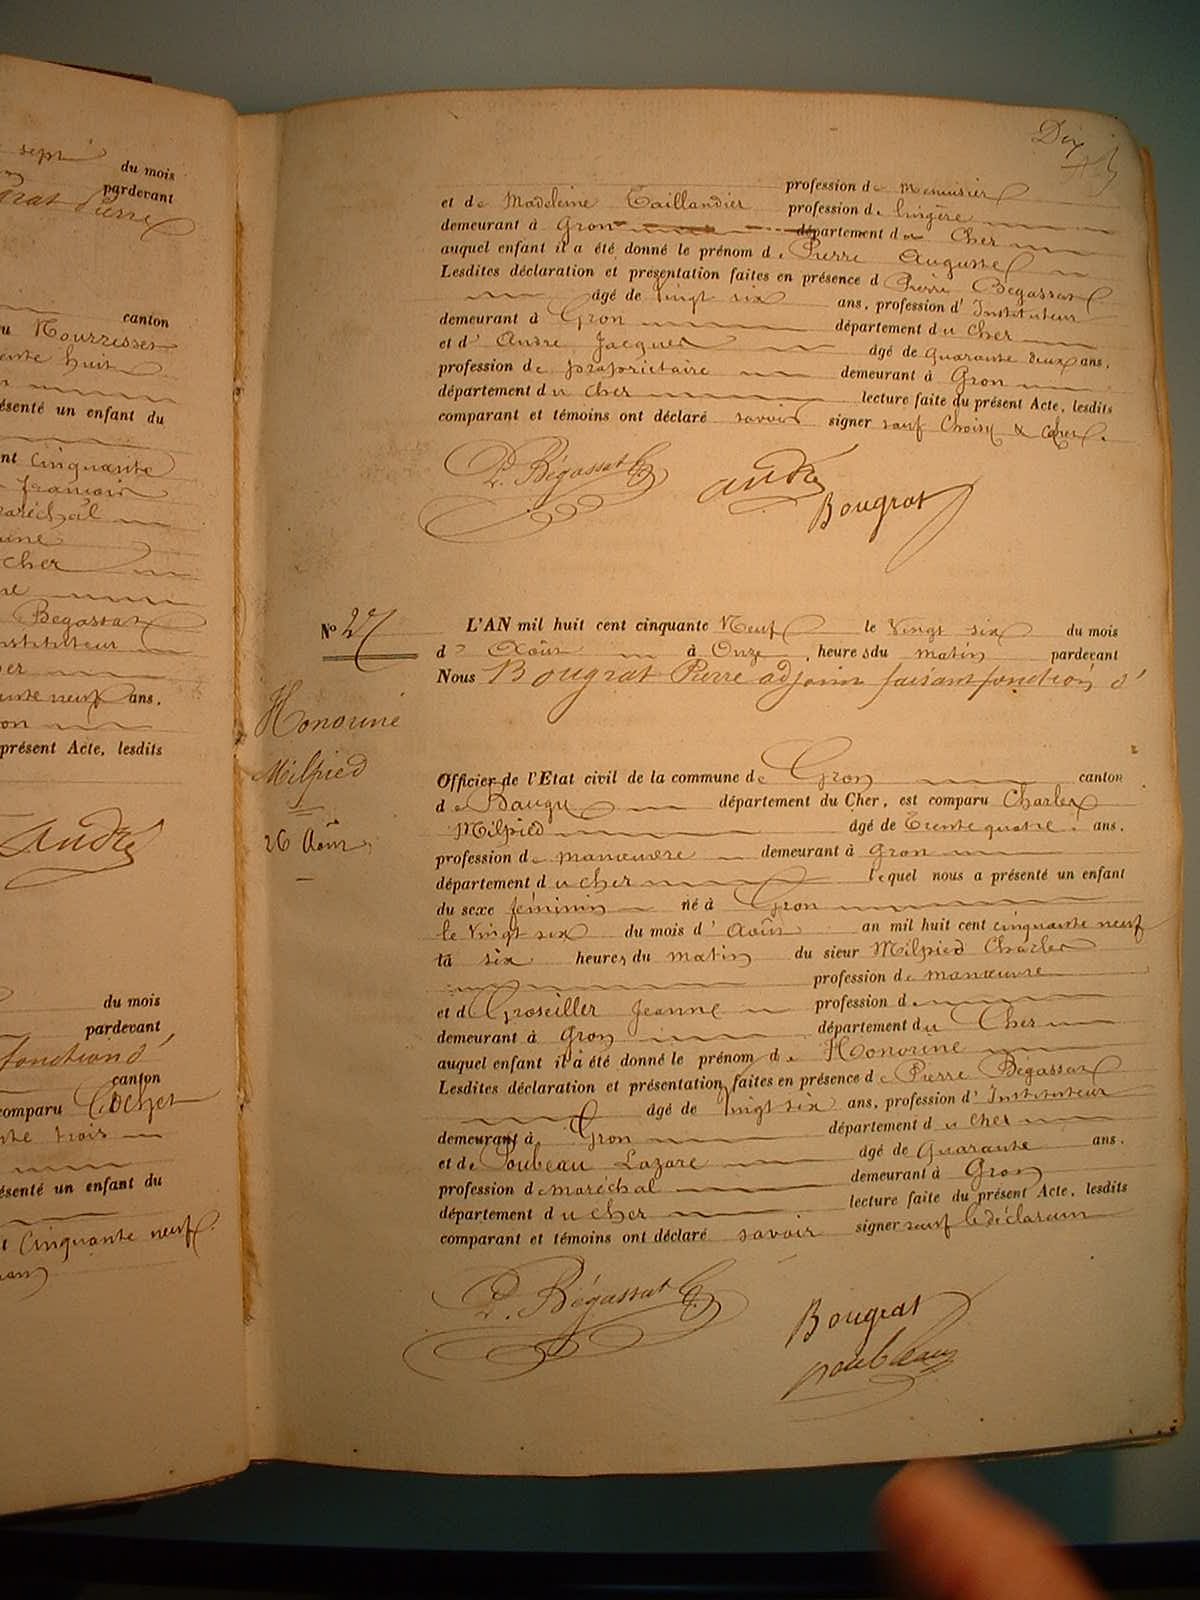 sept du mois
pardevant
canton
Nourrisses
huit
ésenté un enfant du
nt cinquante
françois
maréchal
cher
Begassat
nstituteur
neuf ans.
présent Acte, lesdits
André
du mois
pardevant
fonction d'
canton
comparu
trois
ésenté un enfant du
cinquante neuf
Dix
profession de menuisier
et de Madeleine Taillandier profession de lingère
demeurant à Gron département du Cher
auquel enfant il a été donné le prénom de Pierre Auguste
Lesdites déclaration et présentation faites en présence de Pierre Begassat
âgé de vingt six ans, profession d'Instituteur
demeurant à Gron département du Cher
et d'André Jacques âgé de quarante deux ans,
profession de propriétaire demeurant à Gron
département du Cher lecture faite du présent Acte, lesdits
comparant et témoins ont déclaré savoir signer sauf Choisy &
P. Bégassat André
Bougrat
N° 27
Honorine
Milpied
26 Août
L'AN mil huit cent cinquante Neuf le vingt six du mois
d' Août à Onze heures du matin pardevant
Nous Bougrat Pierre adjoint faisant fonction d'
Officier de l'Etat civil de la commune de Gron canton
de Baugy département du Cher, est comparu Charles
Milpied âgé de Trente quatre ans,
profession de manœuvre demeurant à Gron
département du cher lequel nous a présenté un enfant
du sexe féminin né à Gron
le vingt six du mois d'Août an mil huit cent cinquante neuf
à six heures du matin du sieur Milpied Charles
profession de manœuvre
et de Groseiller Jeanne profession d
demeurant à Gron département du Cher
auquel enfant il a été donné le prénom de Honorine
Lesdites déclaration et présentation faites en présence de Pierre Bégassat
âgé de vingt six ans, profession d'Instituteur
demeurant à Gron département du cher
et de Soubeau Lazare âgé de Quarante ans.
profession de maréchal demeurant à Gron
département du cher lecture faite du présent Acte, lesdits
comparant et témoins ont déclaré savoir signer sauf le déclarant
P. Bégassat Bougrat
soubeau